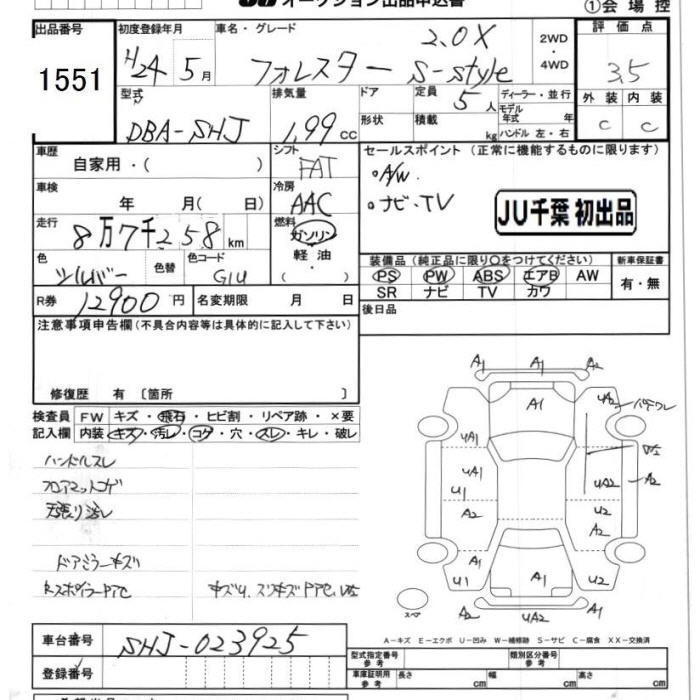 オークション出品申込書
①会場控
出品番号 1551
初度登録年月 H24年5月
車名・グレード フォレスター 2.0X S-style
2WD・4WD
評価点 3.5
外装 C 内装 C
型式 DBA-SHJ
排気量 1.99cc
ドア形状
定員 5人
積載 kg
ディーラー・並行
モデル年式 年
ハンドル 左・右
車歴 自家用・( )
シフト FAT
セールスポイント (正常に機能するものに限ります)
・A/W
・ナビ・TV
JU千葉 初出品
車検 年 月( 日)
冷房 AAC
走行 8万7千258km
燃料 ガソリン・軽油・( )
色 シルバー 色替 色コード G1U
装備品 (純正品に限り〇をつけてください)
PS PW ABS エアB AW
SR ナビ TV カワ
新車保証書 有・無
R券 12900円
名変期限 月 日
後日品
注意事項申告欄 (不具合内容等は具体的に記入して下さい)
修復歴 有 〔箇所 〕
検査員記入欄
FW キズ・飛石・ヒビ割・リペア跡・×要
内装 キズ・汚レ・コゲ・穴・スレ・キレ・破レ
ハンドルスレ
フロアマットコゲ
天張り汚レ
ドアミラーキズ
A1 A1 A2
A1
UA2
UA1
UA1
U1
UA2 A2
A2
U2
U1
A1
U2
A2 UA2 A1
スペア
A-キズ E-エクボ U-凹み W-補修跡 S-サビ C-腐食 XX-交換済
車台番号 SHJ-023925
登録番号
型式指定番号 参考
類別区分番号 参考
車庫証明用 参考 長さ cm 幅 cm 高さ cm